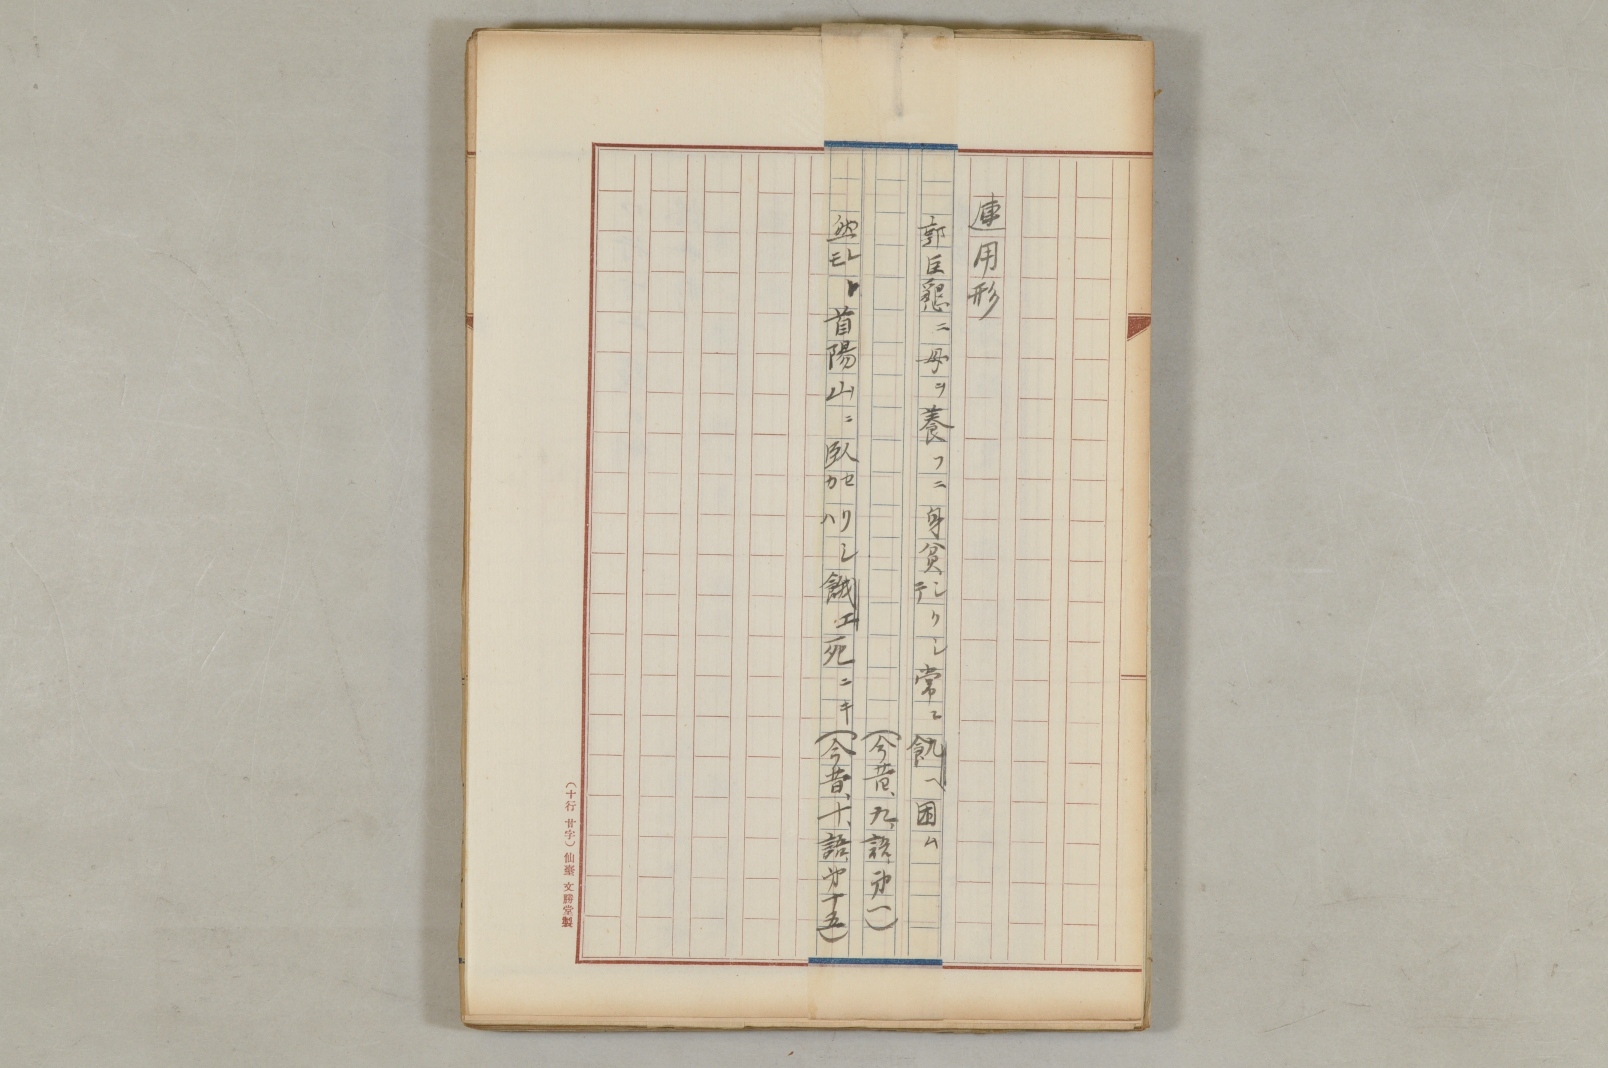 連用形
郭巨懇ニ母ヲ養フニ身貧シクシテ常ニ飢ヘ困ム
(今昔、九、説、第一)
然レトモ首陽山ニ臥セリシカハ餓エ死ニキ
(今昔、十、語、第十五)
(十行廿字)仙臺文勝堂製